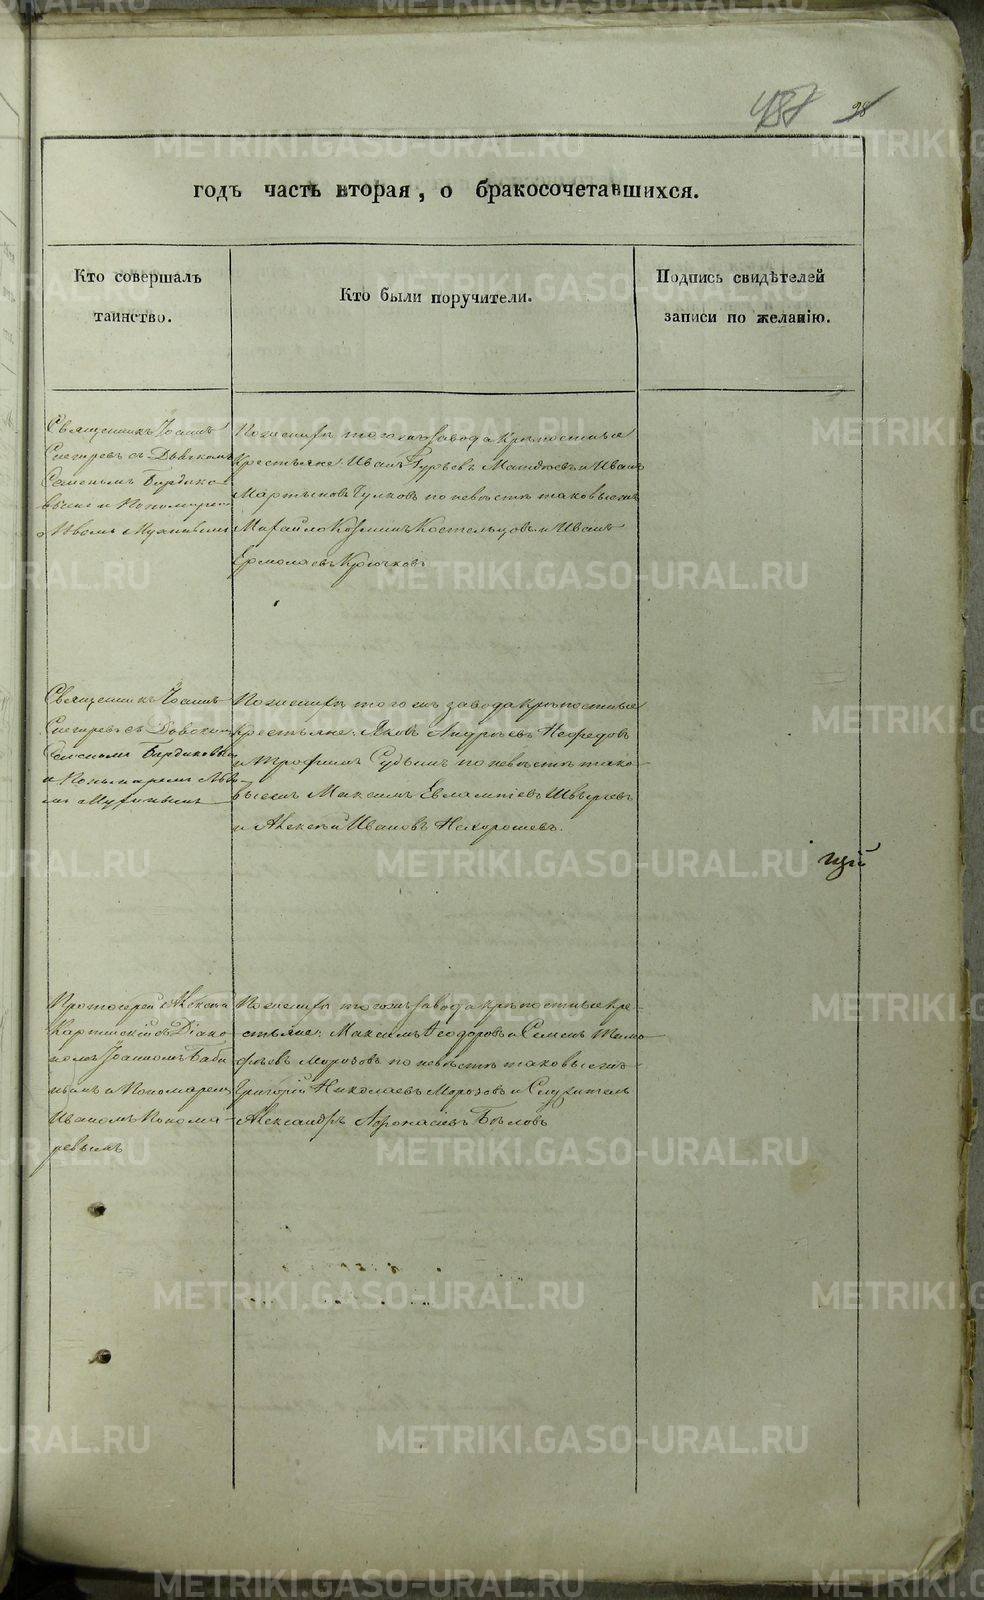 487 28
годъ часть вторая, о бракосочетавшихся.
Кто совершалъ
таинство.
Кто были поручители.
Подпись свидѣтелей
записи по желанію.
Священникъ Іоаннъ
Снегиревъ съ Дьякономъ
Семеномъ
и Пономаремъ
По жениху того жъ завода крѣпостные
крестьяне Иванъ Гурьевъ Матвѣевъ и Иванъ
Мартыновъ Гулковъ по невѣстѣ таковые жъ
Михайло Козминъ Костельцовъ и Иванъ
Ермолаевъ Крючковъ
Священникъ Іоаннъ
Снегиревъ съ
Семеномъ
и Пономаремъ
По жениху того жъ завода крѣпостные
крестьяне: Яковъ Андреевъ Нефедовъ
и Трофимъ Судьинъ по невѣстѣ тако-
вые жъ Максимъ Евлампіевъ
и Алексѣй Ивановъ Нехорошевъ.
цій
Протоіерей Алексѣй
Карпинскій съ Діако-
номъ Іоанномъ Баби-
нымъ и Пономаремъ
Иваномъ Понома-
ревымъ
По жениху того жъ завода крѣпостные кре-
стьяне: Максимъ Ѳеодоровъ и Семенъ Тимо-
фѣевъ Морозовъ по невѣстѣ таковые жъ
Григорій Николаевъ Морозовъ и Служитель
Александръ Афонасіевъ Бѣловъ
METRIKI.GASO-URAL.RU